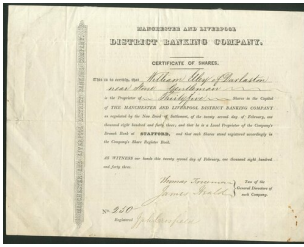 MANCHESTER AND LIVERPOOL
DISTRICT BANKING COMPANY.
CERTIFICATE OF SHARES.
This is to certify, that William Utley of Darlaston
near Stone Gentleman
is the Proprietor of Thirty five Shares in the Capital
of THE MANCHESTER AND LIVERPOOL DISTRICT BANKING COMPANY
as regulated by the New Deed of Settlement, of the twenty second day of February, one
thousand eight hundred and forty three; and that he is a Local Proprietor of the Company's
Branch Bank at STAFFORD, and that such Shares stand registered accordingly in
the Company's Share Register Book.
AS WITNESS our hands the twenty second day of February, one thousand eight hundred
and forty three.
Thomas
James Heald
Two of the
General Directors of
such Company.
No. 250
Registered,
MANCHESTER AND LIVERPOOL DISTRICT BANKING COMPANY